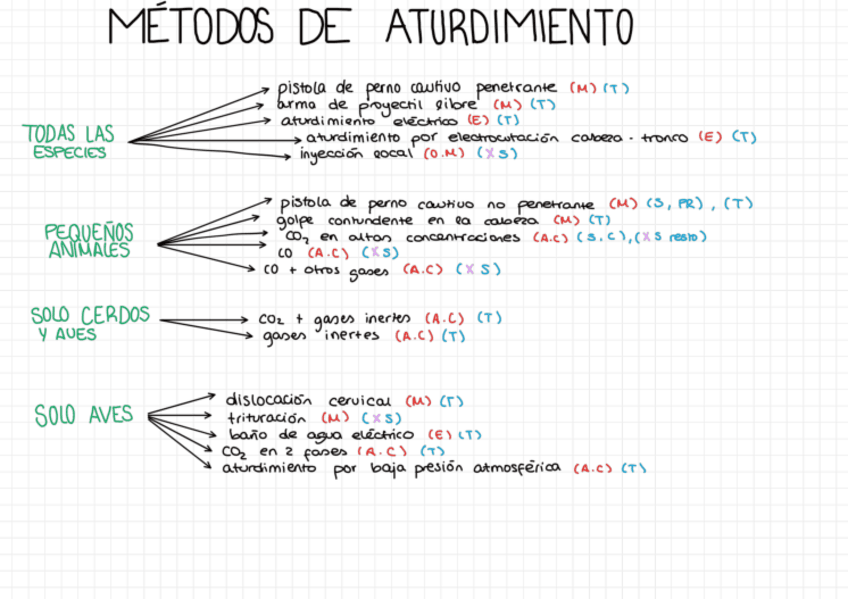 MÉTODOS DE ATURDIMIENTO
TODAS LAS ESPECIES
pistola de perno cautivo penetrante (M) (T)
arma de proyectil libre (M) (T)
aturdimiento eléctrico (E) (T)
aturdimiento por electrocutación cabeza - tronco (E) (T)
inyección local (O.M) (X S)
PEQUEÑOS ANIMALES
pistola de perno cautivo no penetrante (M) (S, PR), (T)
golpe contundente en la cabeza (M) (T)
CO₂ en altas concentraciones (A.C) (S.C), (X S resto)
CO (A.C) (X S)
CO + otros gases (A.C) (X S)
SOLO CERDOS Y AVES
CO₂ + gases inertes (A.C) (T)
gases inertes (A.C) (T)
SOLO AVES
dislocación cervical (M) (T)
trituración (M) (X S)
baño de agua eléctrico (E) (T)
CO₂ en 2 fases (A.C) (T)
aturdimiento por baja presión atmosférica (A.C) (T)